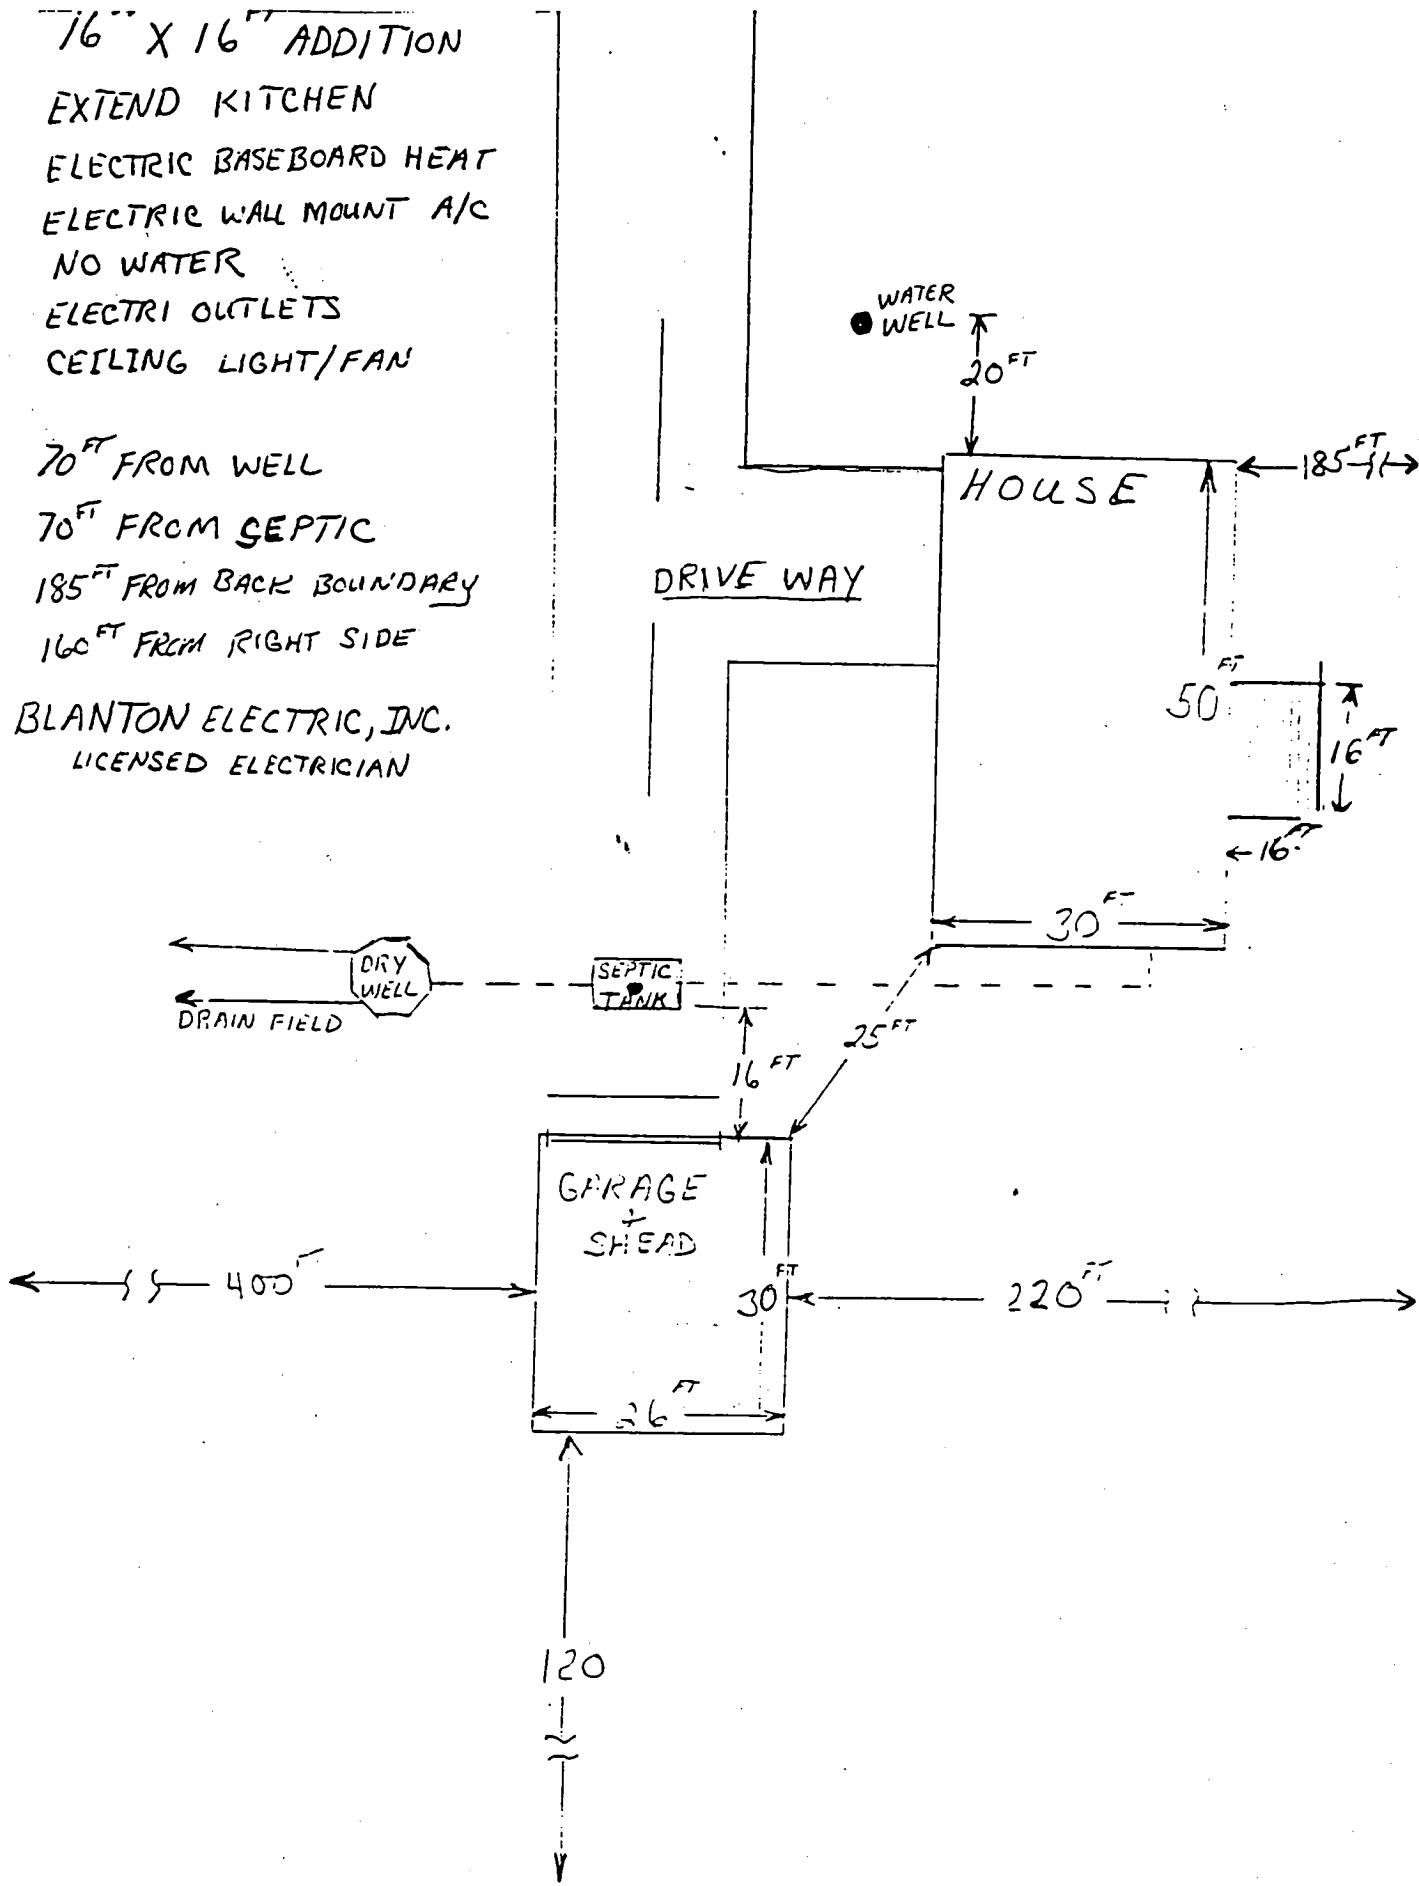 16 FT X 16 FT ADDITION
EXTEND KITCHEN
ELECTRIC BASEBOARD HEAT
ELECTRIC WALL MOUNT A/C
NO WATER
ELECTRI OUTLETS
CEILING LIGHT/FAN
70 FT FROM WELL
70 FT FROM SEPTIC
185 FT FROM BACK BOUNDARY
160 FT FROM RIGHT SIDE
BLANTON ELECTRIC, INC.
LICENSED ELECTRICIAN
WATER
WELL
20 FT
185 FT
HOUSE
DRIVE WAY
50 FT
16 FT
16 FT
30 FT
DRY
WELL
SEPTIC
TANK
DRAIN FIELD
25 FT
16 FT
GARAGE
+
SHEAD
400 FT
30 FT
220 FT
26 FT
120